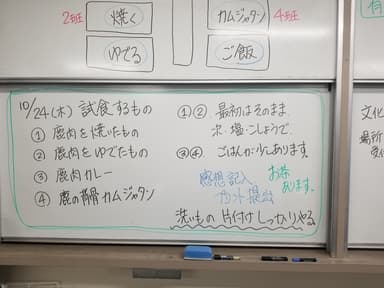 2班
焼く
ゆでる
カムジャタン
4班
ご飯
10/24(木) 試食するもの
① 鹿肉を焼いたもの
② 鹿肉をゆでたもの
③ 鹿肉カレー
④ 鹿の背骨カムジャタン
①② 最初はそのまま
次、塩・こしょうで
③④. ごはんが少しあります。
感想記入
提出
お茶
あります。
洗いもの 片付け しっかりやる
文化
場所